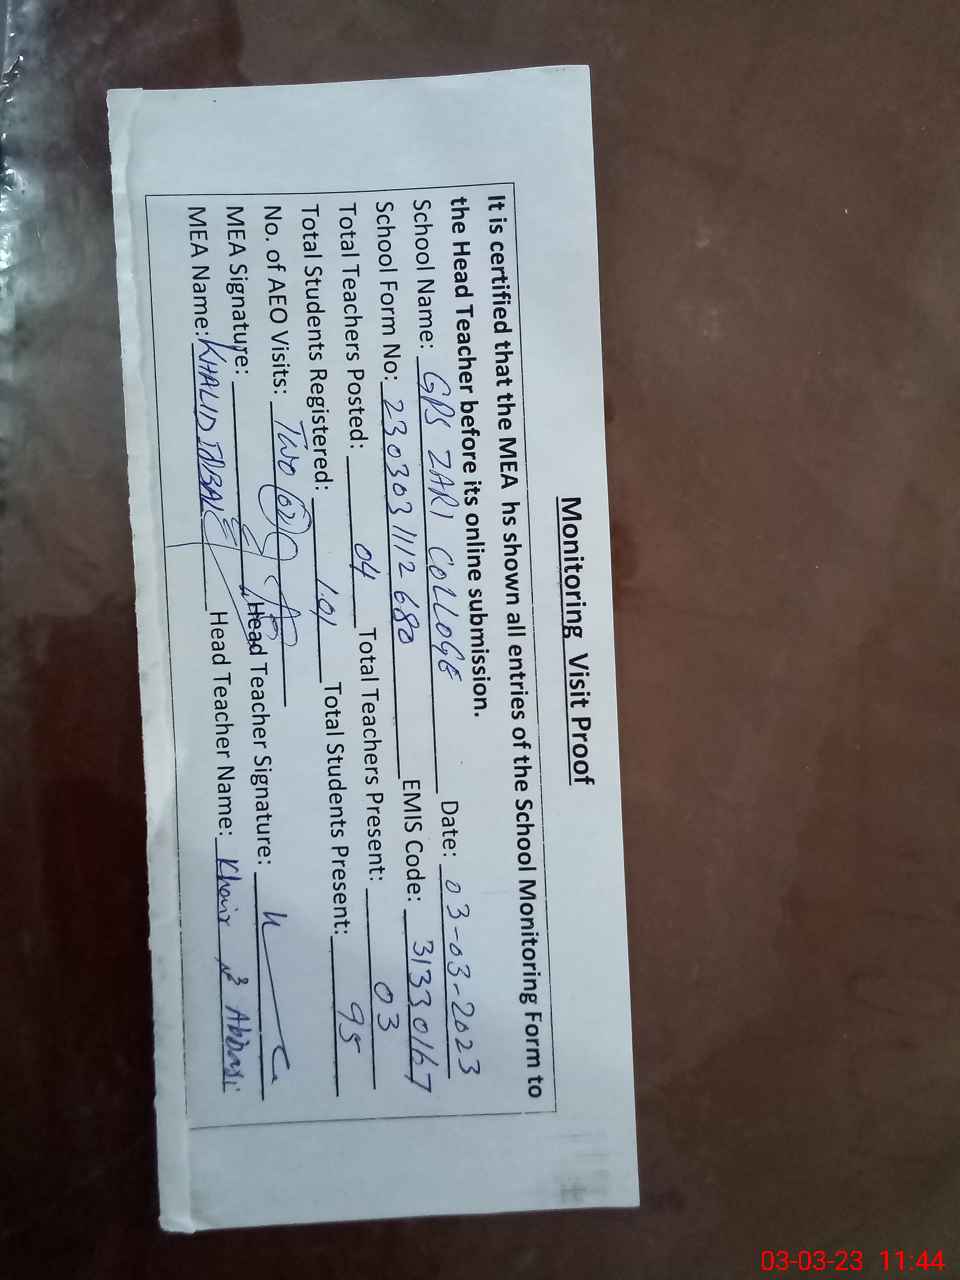 Monitoring Visit Proof
It is certified that the MEA hs shown all entries of the School Monitoring Form to
the Head Teacher before its online submission.
School Name: GPS ZARI COLLOGE Date: 03-03-2023
School Form No: 2303031112680 EMIS Code: 31330167
Total Teachers Posted: 04 Total Teachers Present: 03
Total Students Registered: 101 Total Students Present: 95
No. of AEO Visits: Two (02)
MEA Signature: Head Teacher Signature:
MEA Name: KHALID IQBAL Head Teacher Name: Khair Abbasi
03-03-23 11:44